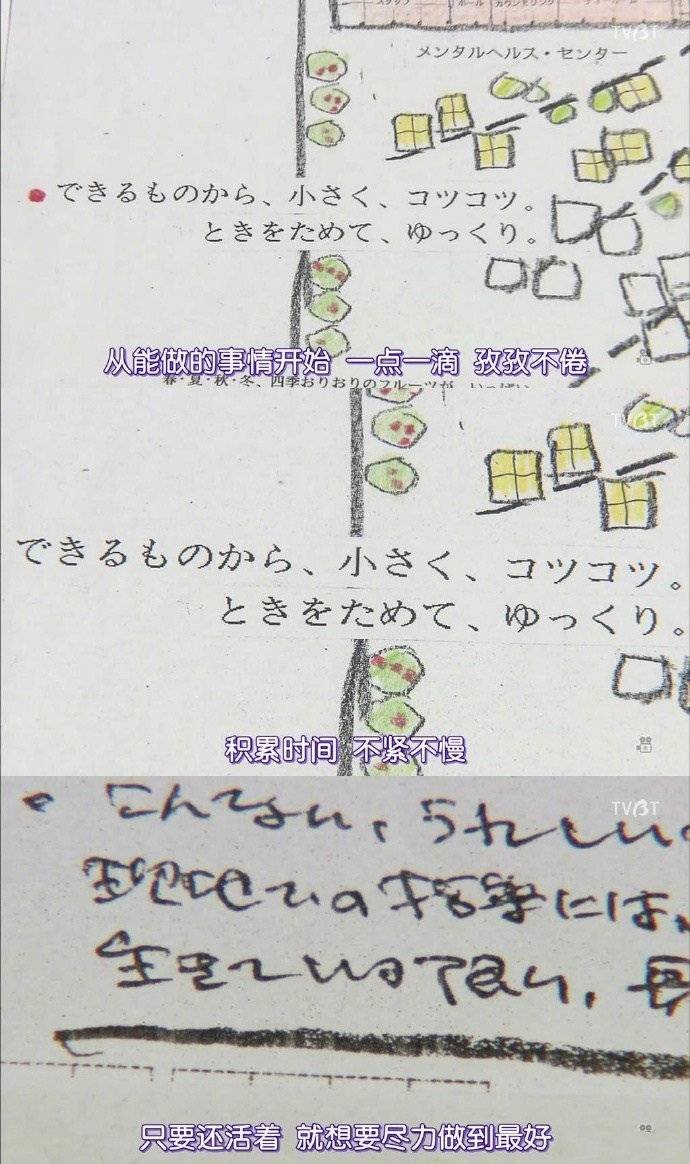 スタッフ
ホール
カウンセリング
TVBT
メンタルヘルス・センター
できるものから、小さく、コツコツ。
ときをためて、ゆっくり。
从能做的事情开始 一点一滴 孜孜不倦
春・夏・秋・冬、四季おりおりのフルーツが、いっぱい
TVBT
できるものから、小さく、コツコツ。
ときをためて、ゆっくり。
积累时间 不紧不慢
TVBT
こんなない、うれしい
現地での作業には、
生きている限り、長
只要还活着 就想要尽力做到最好